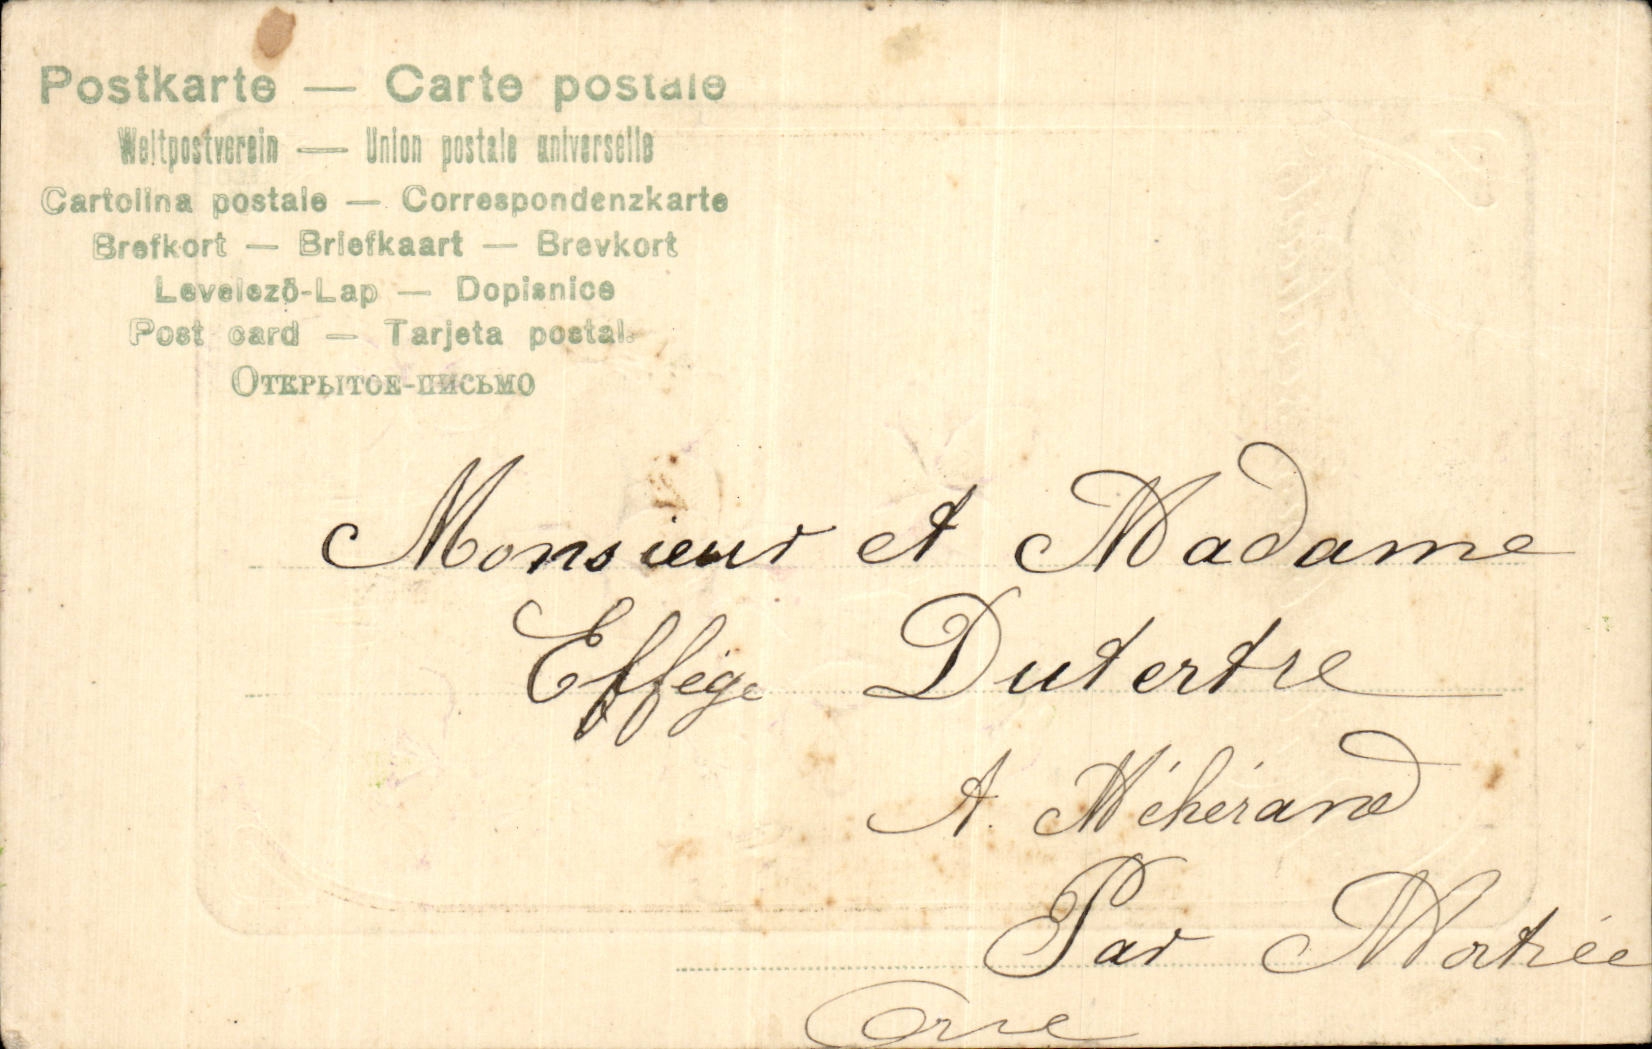 Postkarte — Carte postale
Weltpostverein — Union postale universelle
Cartolina postale — Correspondenzkarte
Brefkort — Briefkaart — Brevkort
Levelező-Lap — Dopisnice
Post card — Tarjeta postal.
Открытое-письмо
Monsieur et Madame
Effége Dutertre
A. Méhérand
Par Mortrée
Orne